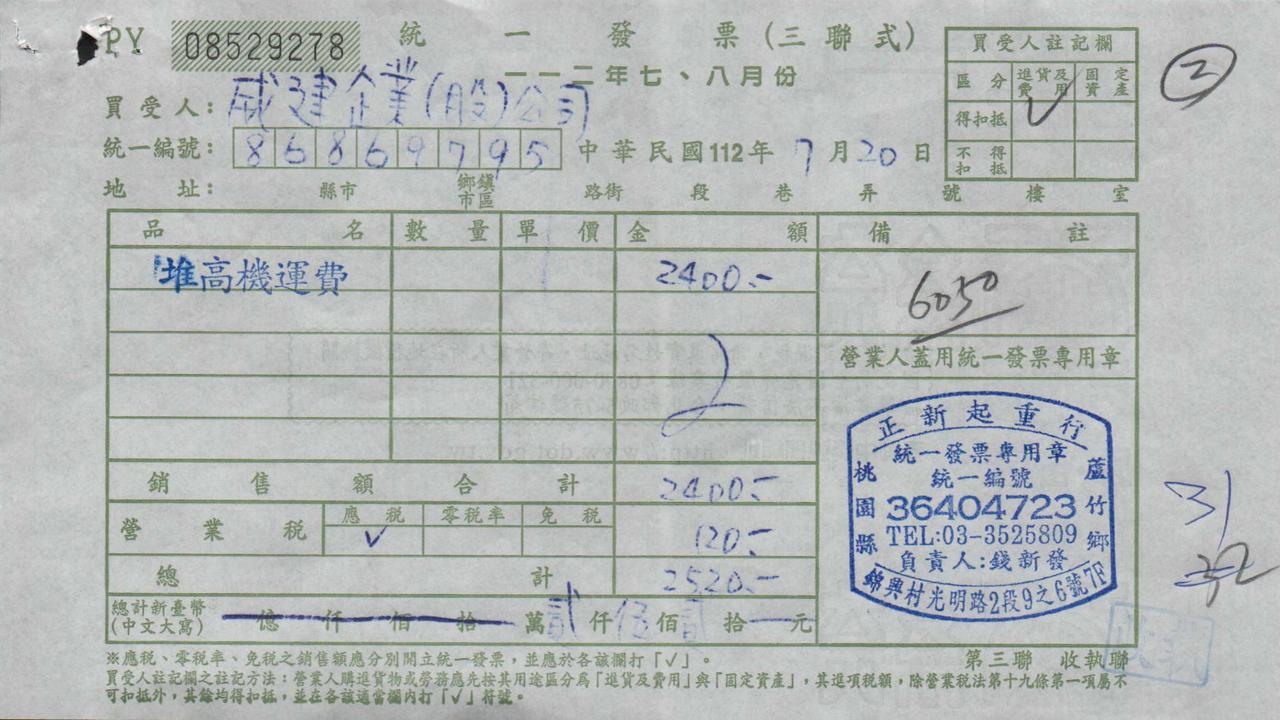 PY 08529278 統一發票(三聯式)
一一二年七、八月份
買受人：威建企業(股)公司
統一編號：86869795 中華民國112年7月20日
地址： 縣市 鄉鎮市區 路街 段 巷 弄 號 樓 室
買受人註記欄
區分 進貨及費用 固定資產
得扣抵 ✓
不得扣抵
②
品名 數量 單價 金額 備註
堆高機運費 2400.-
6050
營業人蓋用統一發票專用章
銷售額合計 2400.-
營業稅 應稅 零稅率 免稅
✓ 120.-
總計 2520.-
總計新臺幣(中文大寫) 億仟佰拾萬貳仟伍佰貳拾元
正新起重行
統一發票專用章
統一編號
36404723
TEL:03-3525809
負責人:錢新發
桃園縣 蘆竹鄉
錦興村光明路2段9之6號7F
31
32
※應稅、零稅率、免稅之銷售額應分別開立統一發票，並應於各該欄打「✓」。
第三聯 收執聯
買受人註記欄之註記方法：營業人購進貨物或勞務應先按其用途區分為「進貨及費用」與「固定資產」，其進項稅額，除營業稅法第十九條第一項屬不
可扣抵外，其餘均得扣抵，並在各該適當欄內打「✓」符號。